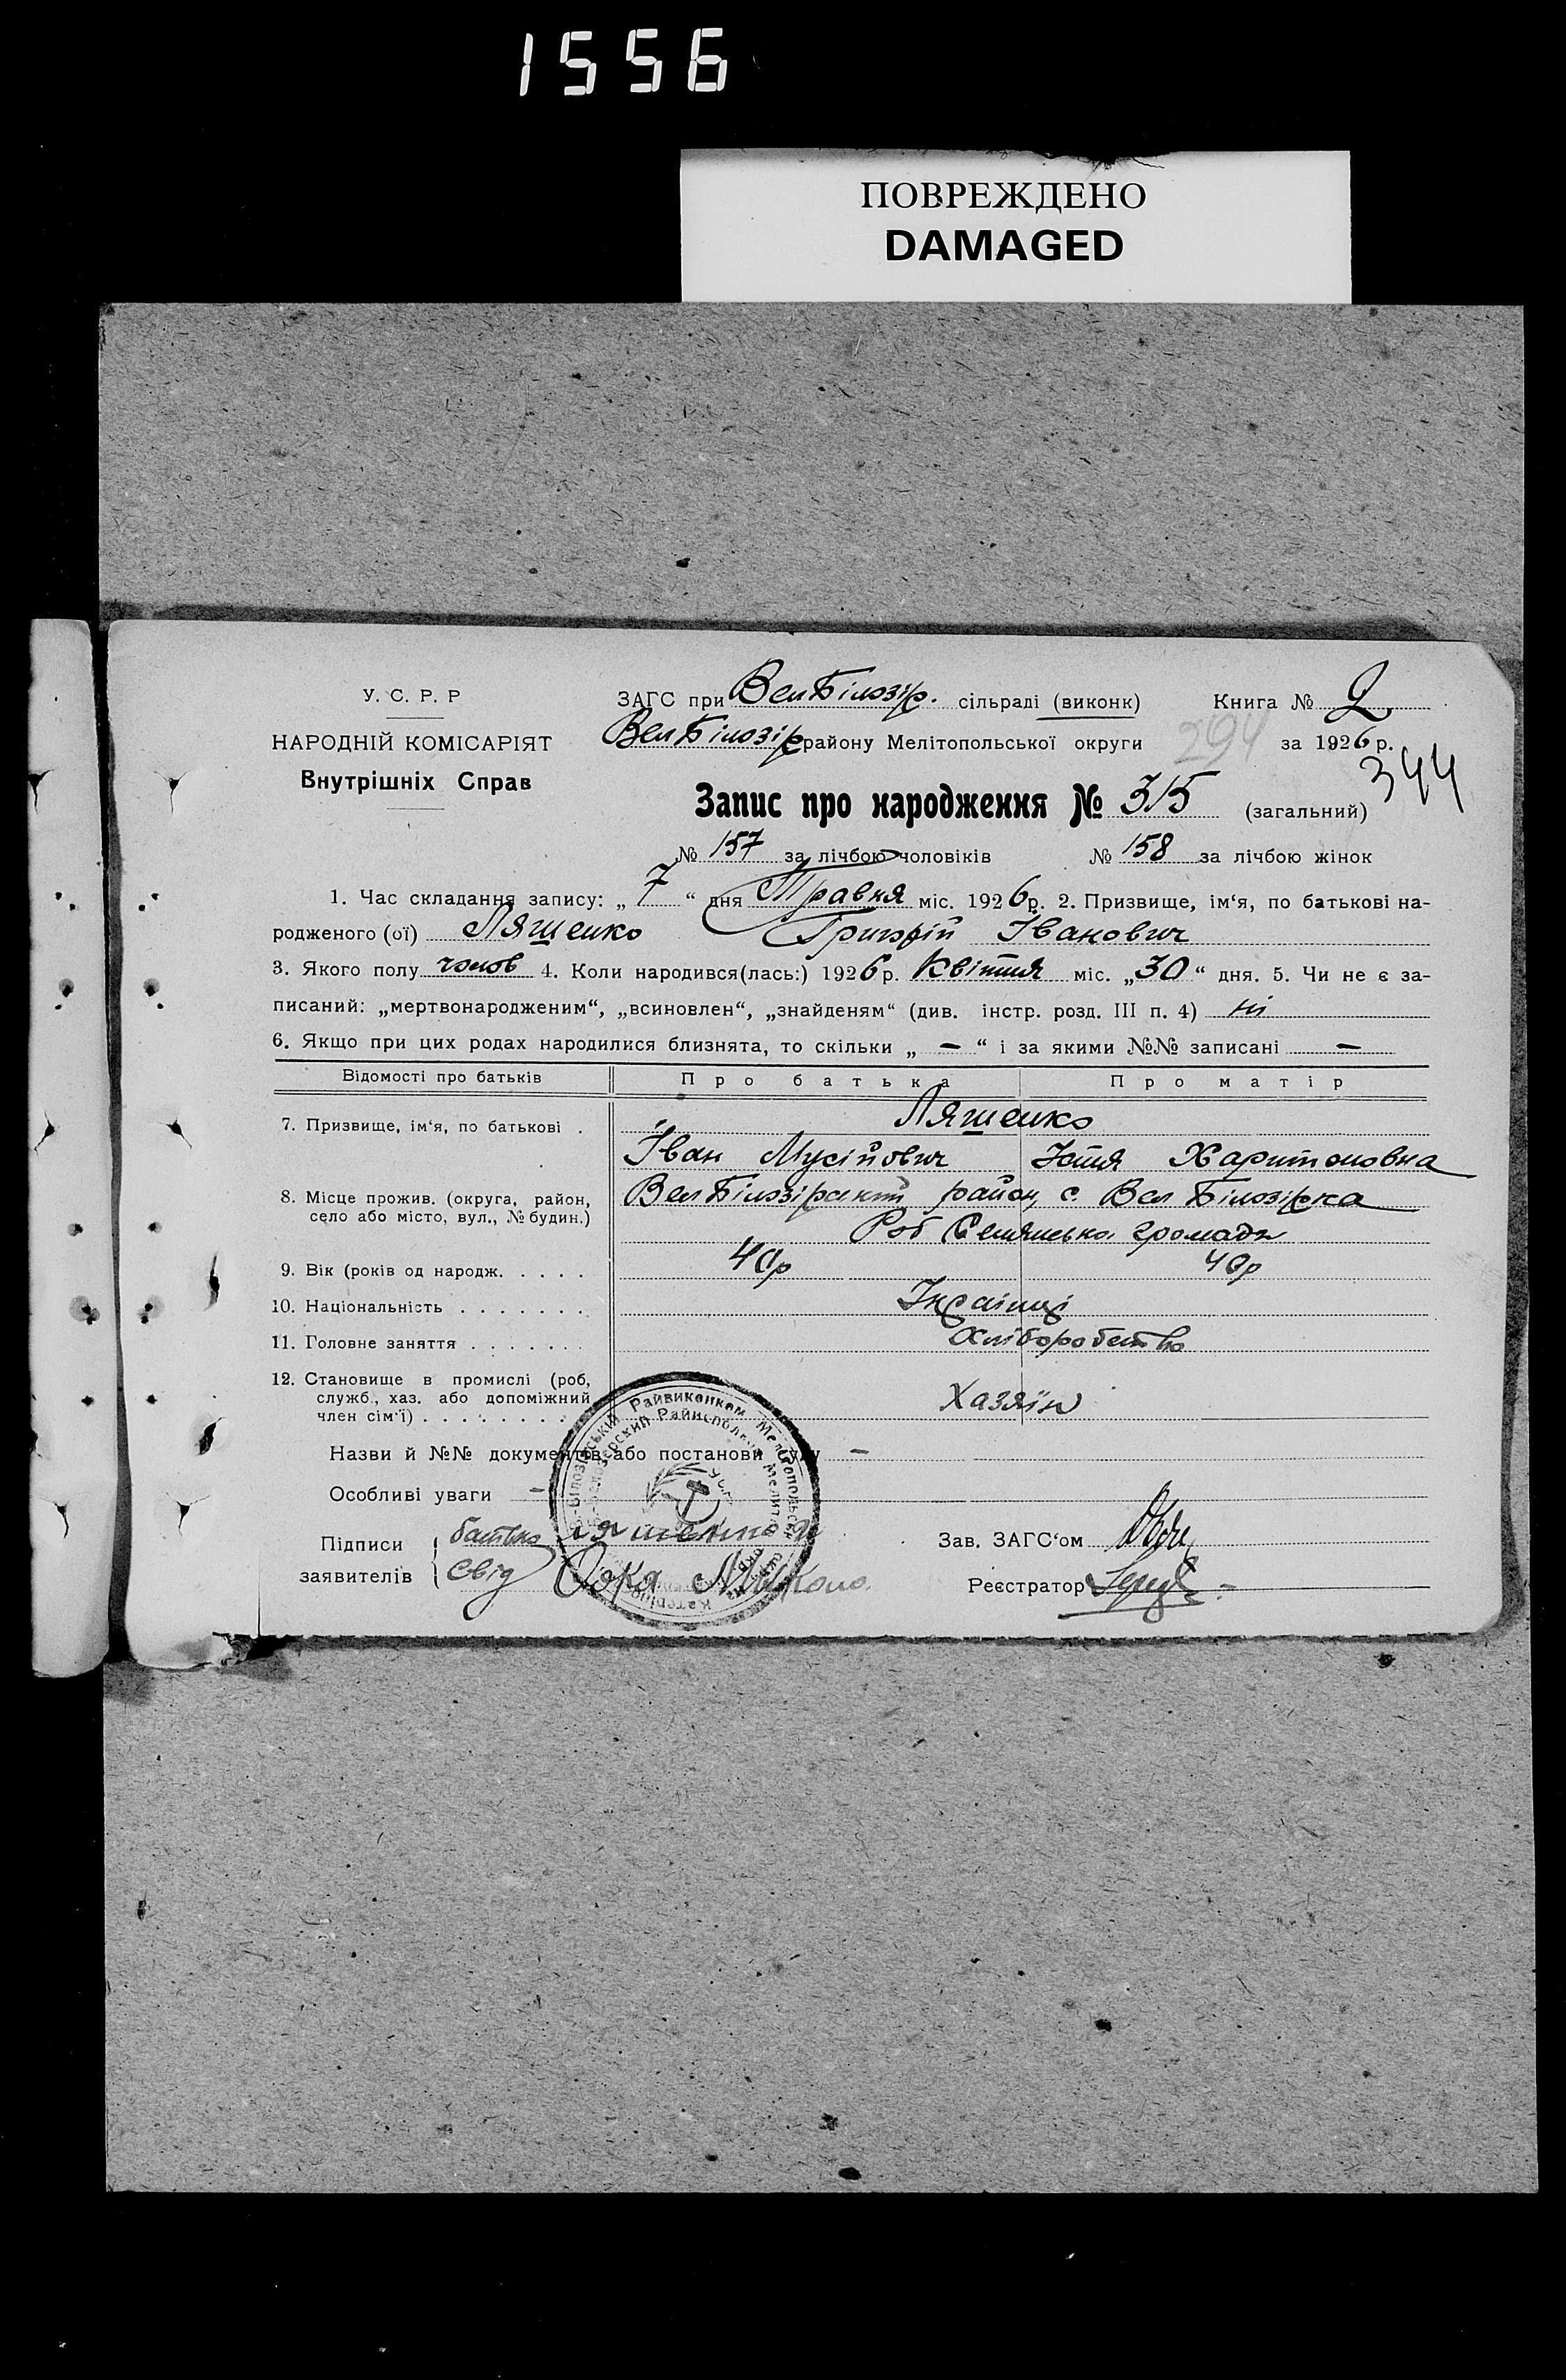 1556
ПОВРЕЖДЕНО
DAMAGED
У. С. Р. Р
НАРОДНІЙ КОМІСАРІЯТ
Внутрішніх Справ
ЗАГС при Вел Білозір. сільраді (виконк) Книга № 2
Вел Білозір району Мелітопольської округи 294 за 1926 р.
344
Запис про народження № 315 (загальний)
№ 157 за лічбою чоловіків № 158 за лічбою жінок
1. Час складання запису: „ 7 “ дня Травня міс. 1926 р. 2. Призвище, ім‘я, по батькові на-
родженого (ої) Ляшенко Григорій Іванович
3. Якого полу чолов 4. Коли народився(лась:) 1926 р. Квітня міс. „30“ дня. 5. Чи не є за-
писаний: „мертвонародженим“, „всиновлен“, „знайденям“ (див. інстр. розд. III п. 4) ні
6. Якщо при цих родах народилися близнята, то скільки „ — “ і за якими №№ записані —
Відомості про батьків Про батька Про матір
7. Призвище, ім‘я, по батькові . Ляшенко
Іван Мусійович Устя Харитоновна
8. Місце прожив. (округа, район, село або місто, вул., № будин.) Вел Білозірський район, с. Вел Білозірка
громада
9. Вік (років од народж. . . . . 40р 40р
10. Національність . . . . . . . Українці
11. Головне заняття . . . . . . . Хліборобство
12. Становище в промислі (роб, служб., хаз. або допоміжний член сім‘ї) . . . . . . . . Хазяїн
Назви й №№ документів або постанови суду —
Особливі уваги —
Підписи заявителів { батько Ляшенко
свід Микола
Зав. ЗАГС‘ом
Реєстратор